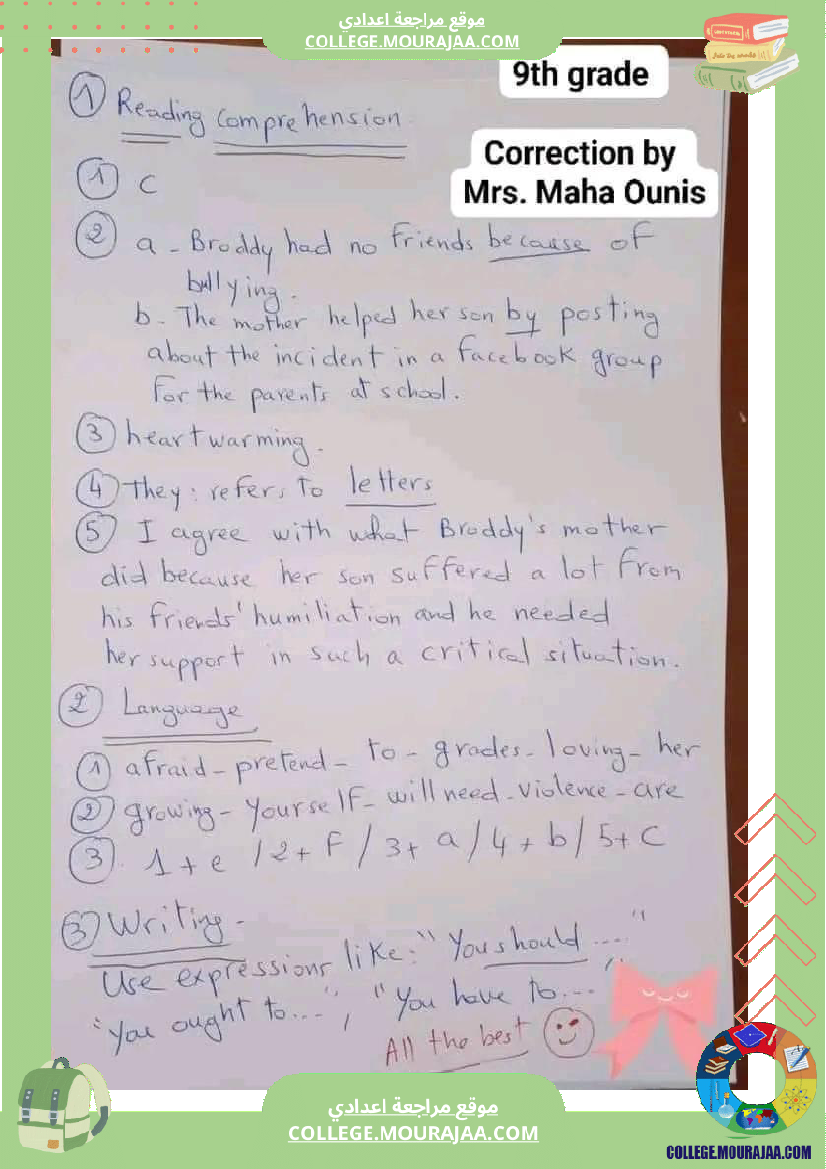 موقع مراجعة اعدادي
COLLEGE.MOURAJAA.COM
9th grade
Correction by
Mrs. Maha Ounis
1 Reading Comprehension
1 C
2 a - Broddy had no friends because of
bullying.
b. The mother helped her son by posting
about the incident in a facebook group
for the parents at school.
3 heartwarming.
4 They: refers to letters
5 I agree with what Broddy's mother
did because her son suffered a lot from
his friends' humiliation and he needed
her support in such a critical situation.
2 Language
1 afraid - pretend - to - grades - loving - her
2 growing - yourself - will need - violence - are
3. 1+e / 2+F / 3+ a / 4+b / 5+C
3 Writing -
Use expressions like: "You should ...."
"You ought to....", "You have to...."
All the best
موقع مراجعة اعدادي
COLLEGE.MOURAJAA.COM
COLLEGE.MOURAJAA.COM